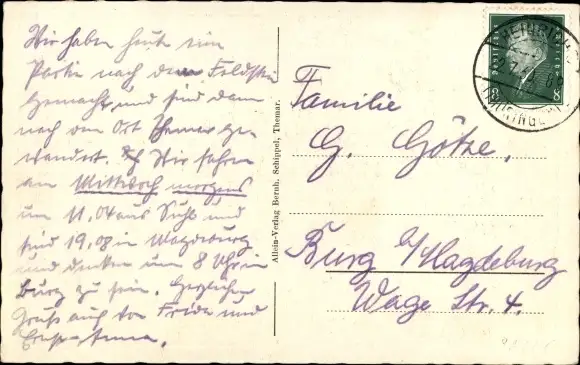 Wir haben heute eine
Partie nach dem Feldstein
gemacht und sind dann
nach dem Ort Themar ge-
wandert. Wir fahren
am Mittwoch morgens
um 11,04 aus Suhl und
sind 19,08 in Magdeburg
und denken um 8 Uhr in
Burg zu sein. Herzlichen
Gruß auch von Frida und
Anna.
Allein-Verlag Bernh. Schippel, Themar.
DEUTSCHES REICH
8 8
Familie
G. Götze,
Burg b/Magdeburg
Wage Str. 4.